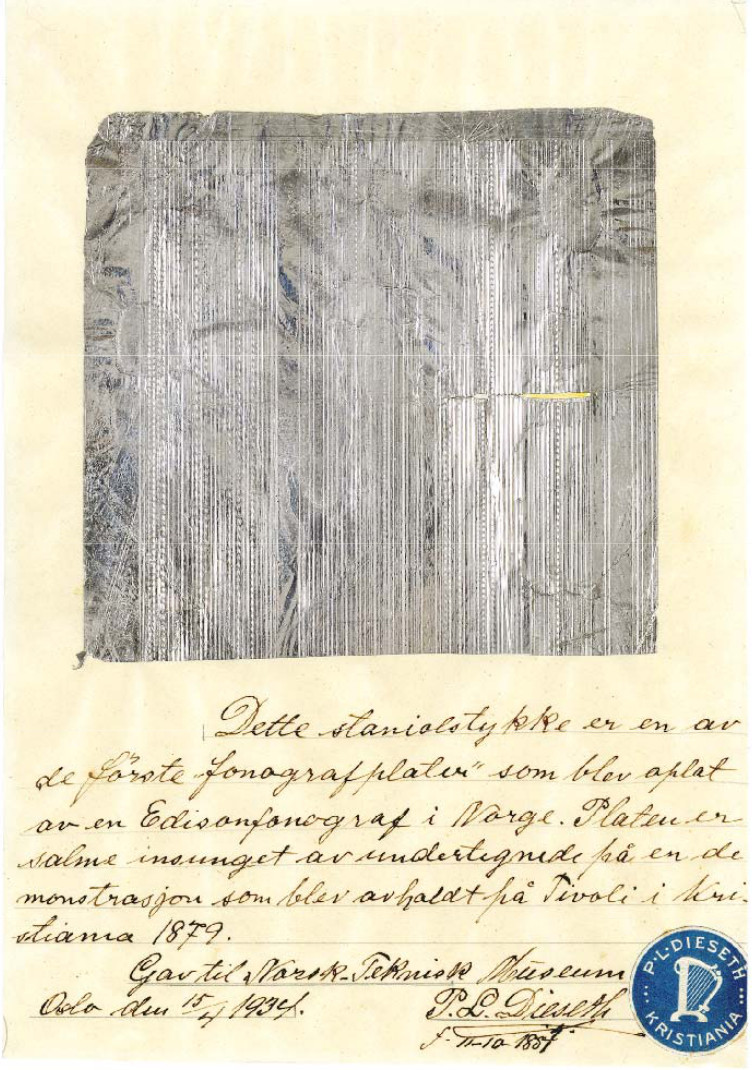 Dette staniolstykke er en av
de förste fonografplater" som blev oplat
av en Edisonfonograf i Norge. Platen er
salme insunget av undertegnede på en de
monstrasjon som blev avholdt på Tivoli i Kri-
stiania 1879.
Gav til Norsk-Teknisk Museum
Oslo den 15/4 1934. P. L. Dieseth
f. 11-10 1857
P·L·DIESETH
KRISTIANIA